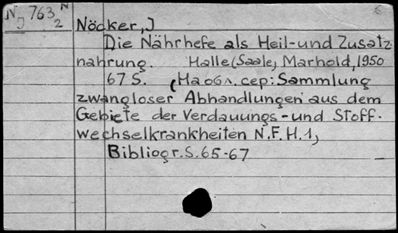 N 763 N
J 2
Nöcker, J
Die Nährhefe als Heil-und Zusatz
nahrung. Halle(Saale, Marhold, 1950
67 S. (На обл. сер: Sammlung
zwangloser Abhandlungen aus dem
Gebiete der Verdauungs-und Stoff-
wechselkrankheiten N.F.H.1)
Bibliogr.S.65-67